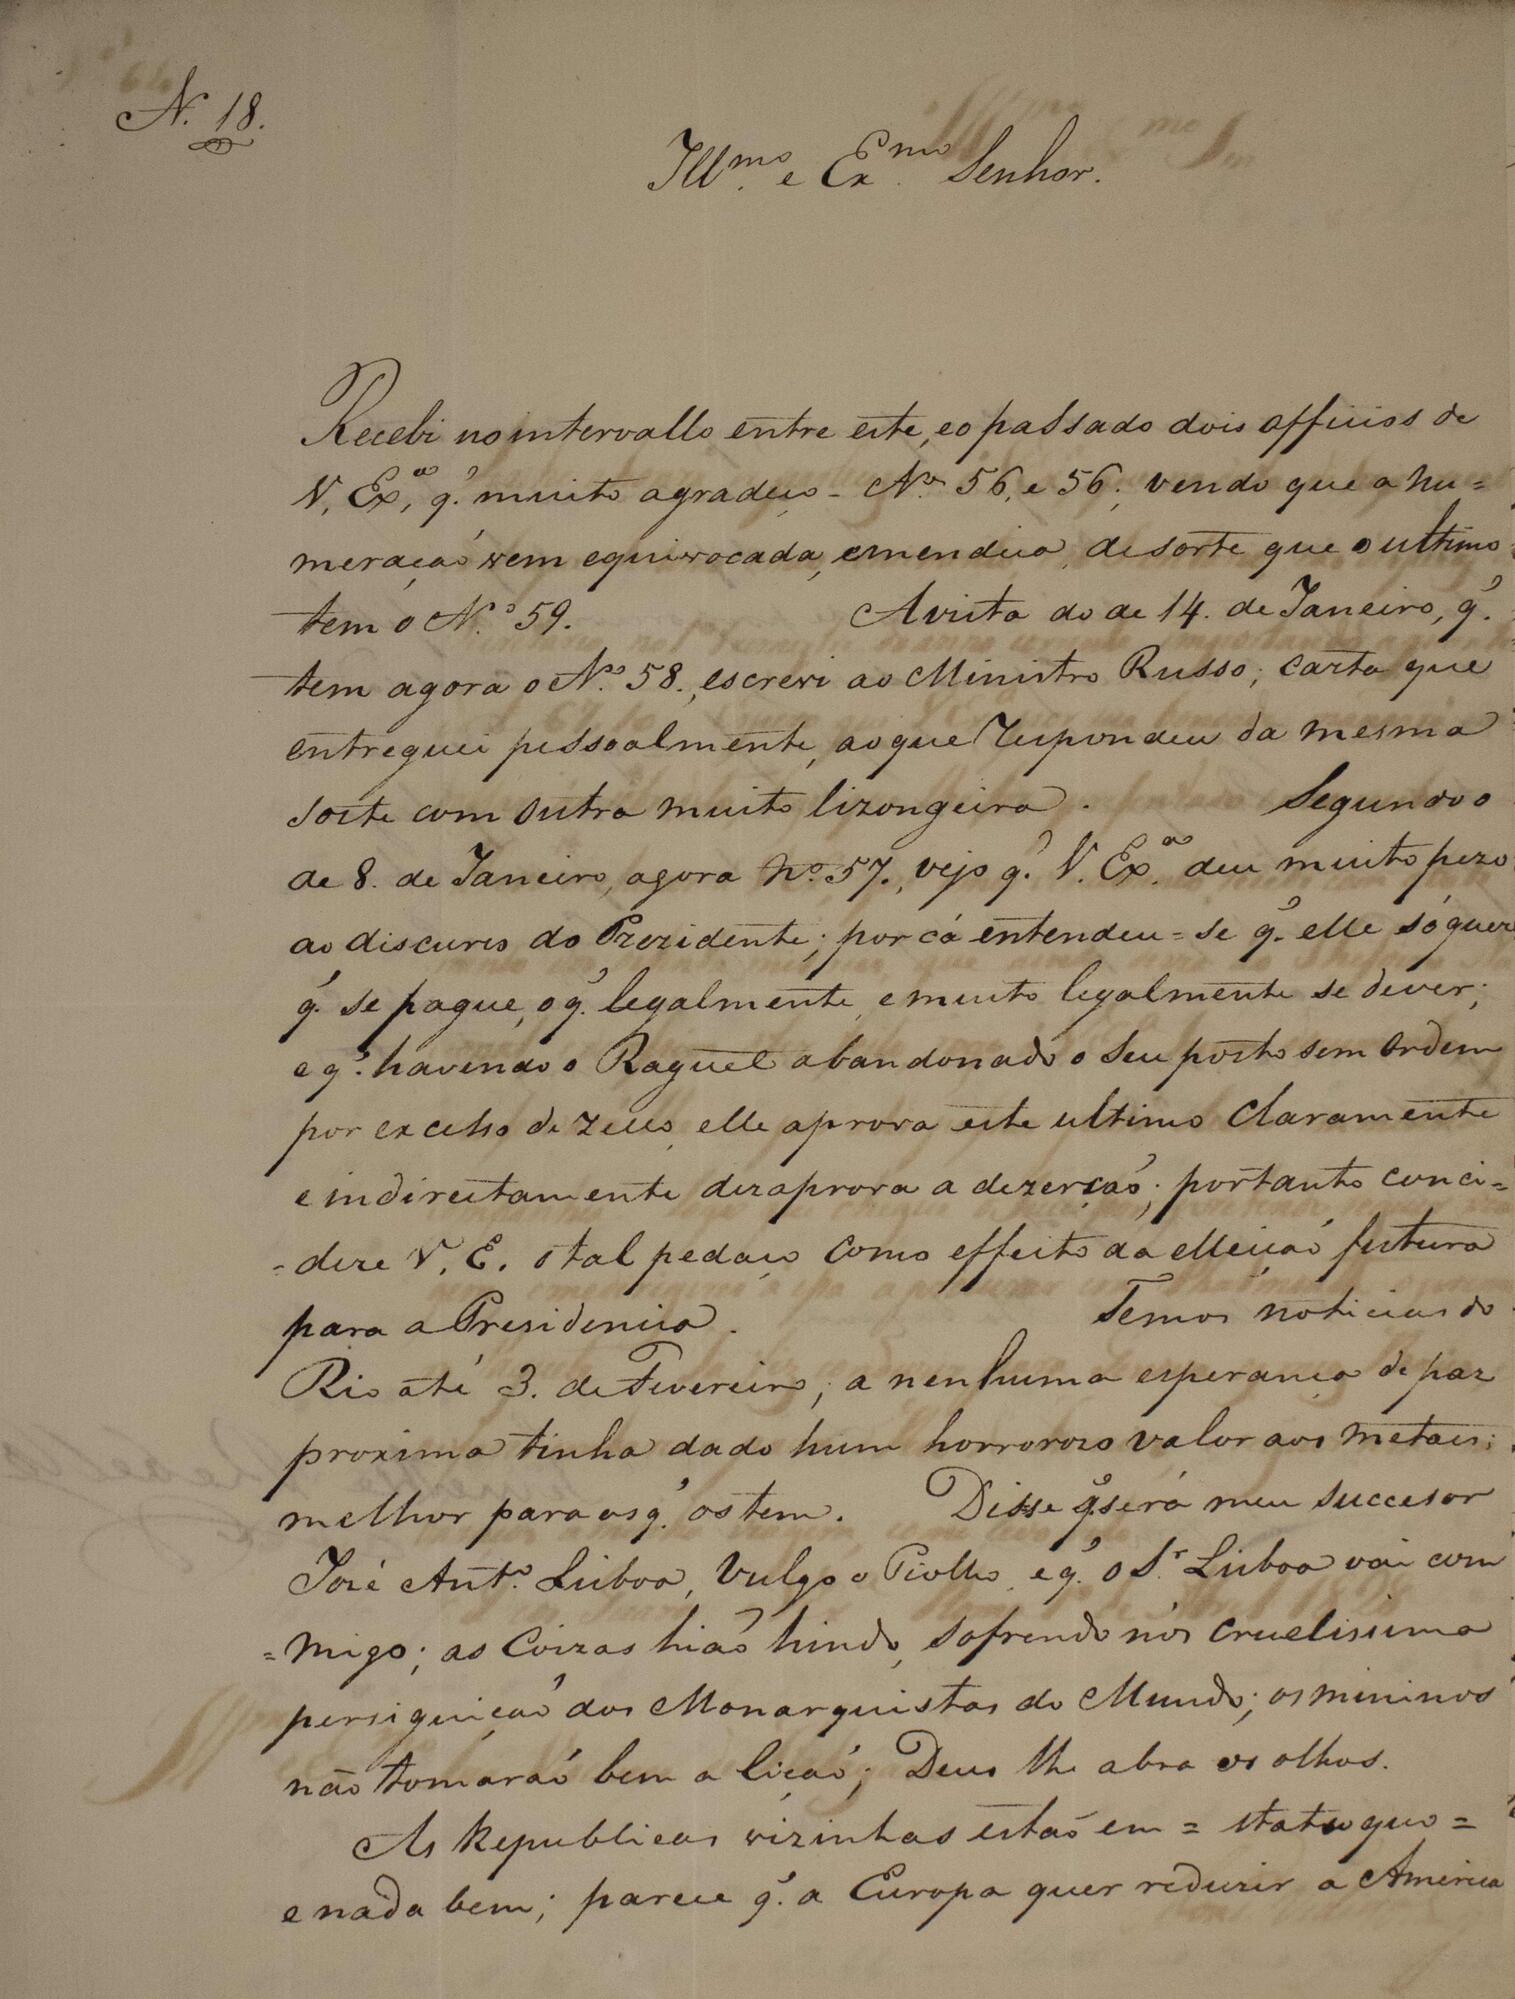 N. 18.
Ill.mo e Ex.mo Senhor.
Recebi no intervallo entre este, e o passado dois officios de
V. Ex.a, q.' muito agradeço - N.os 56, e 56; vendo que a nu=
meraçaõ vem equivocada, emendeia, de sorte que o ultimo
tem o N.º 59. A vista do de 14. de Janeiro, q.'
tem agora o N.º 58., escrevi ao Ministro Russo; carta que
entreguei pessoalmente, ao que respondeu da mesma
sorte com outra muito lizongeira. Segundo o
de 8. de Janeiro, agora Nº 57., vejo q.' V. Ex.a deu muito pezo
ao discurso do Prezidente; por cá entendeu=se q.' elle só quer
q.' se pague, o q.' legalmente, e muito legalmente se dever;
e q.' havendo o Raguet abandonado o seu posto sem ordem
por excesso de zello, elle aprova este ultimo claramente
e indirectamente dezaprova a dezerçaõ; portanto conci=
=dere V. E. o tal pedaço como effeito da elleiçaõ futura
para a Presidencia. Temos noticias do
Rio até 3. de Fevereiro; a nenhuma esperança de paz
proxima tinha dado hum horrorozo valor aos metaes;
melhor para os q.' os tem. Disse q.' será meu succesor
José Ant.º Lisboa, vulgo o Piolho, e q.' o S.r Lisboa vai com
=migo; as coizas hiaõ hindo, sofrendo nós cruelissima
persiguiçaõ dos Monarquistas do Mundo; os mininos
não tomaraõ bem a liçaõ; Deus lhe abra os olhos.
As Republicas vizinhas estaõ em = statu quo =
e nada bem; parece q.' a Europa quer reduzir a America